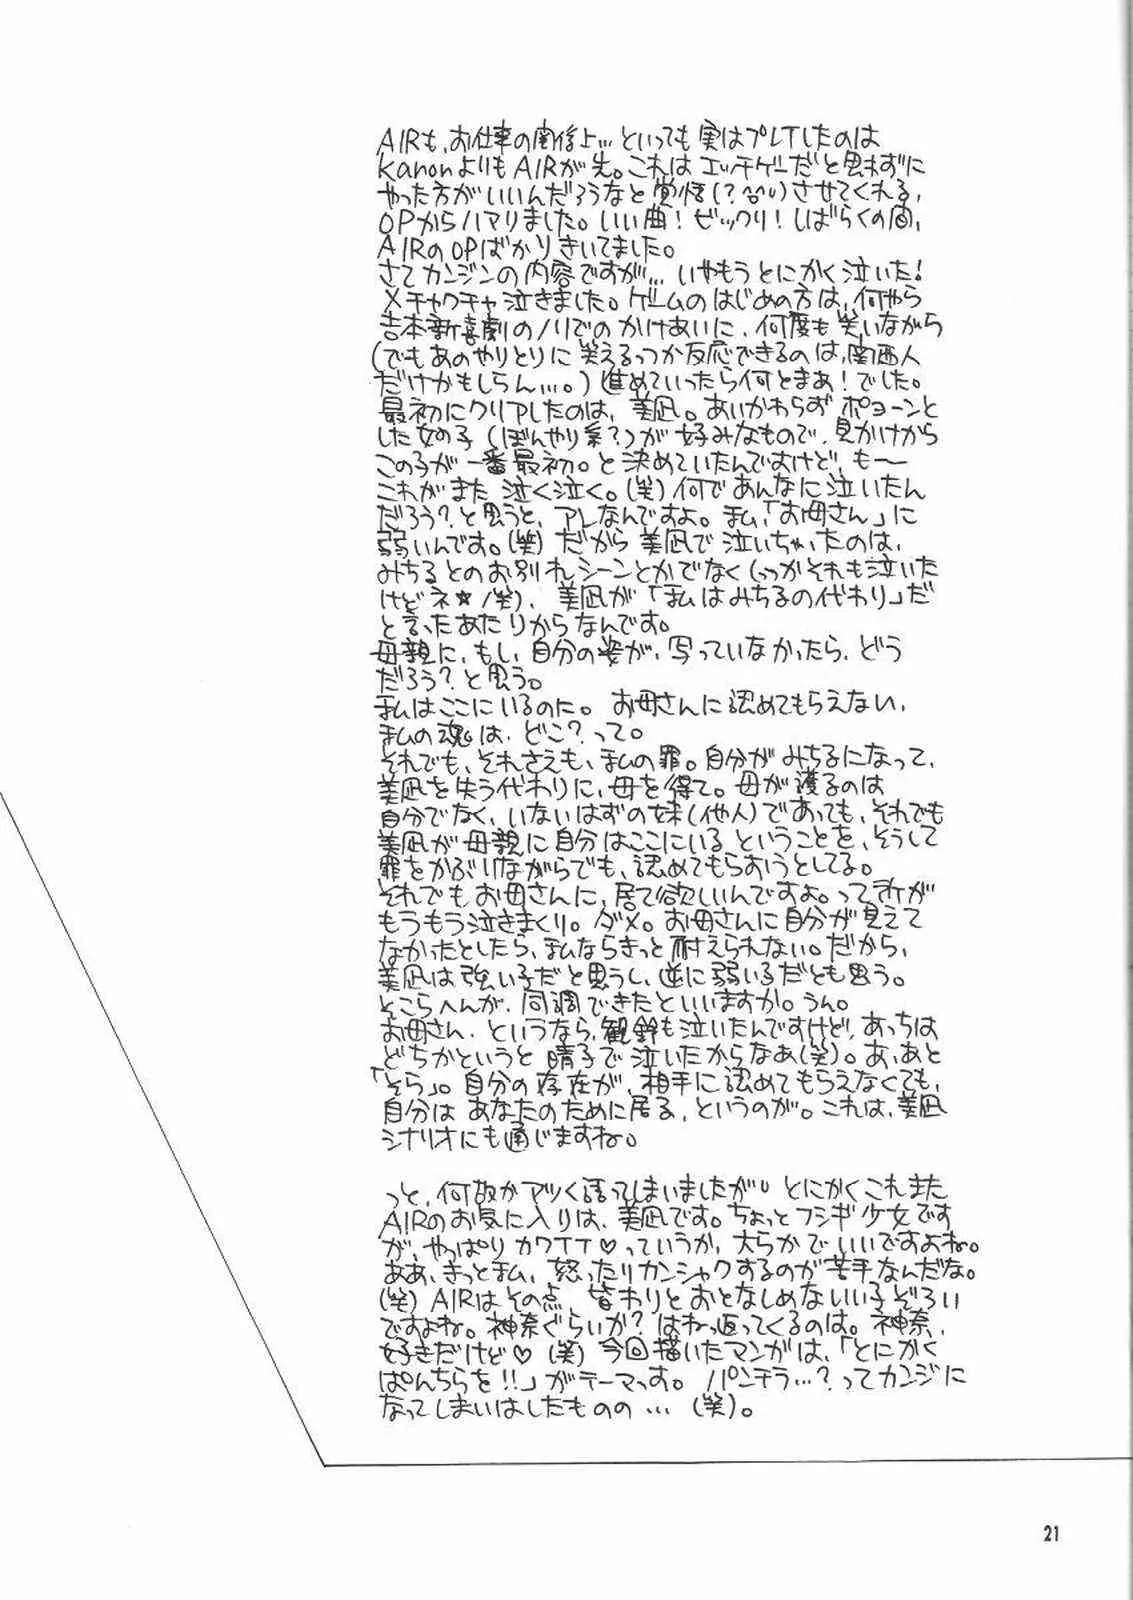 AIRも、お仕事の関係上…といっても実はプレイしたのは
KanonよりもAIRが先。これはエッチゲーだと思わずに
やった方がいいんだろうなと覚悟(?^^;)させてくれる、
OPからハマりました。いい曲!ビックリ!しばらくの間、
AIRのOPばかりきいてました。
さてカンジンの内容ですが…いやもうとにかく泣いた!
メチャクチャ泣きました。ゲームのはじめの方は、何やら
吉本新喜劇のノリでのかけあいに、何度も笑いながら
(でもあのやりとりに笑えるっつか反応できるのは、関西人
だけかもしらん…。)進めていったら何とまあ!でした。
最初にクリアしたのは、美凪。あいかわらずポヨーンと
した女の子(ぼんやり系?)が好みなもので、見かけから
この子が一番最初。と決めていたんですけど、も〜
これがまた泣く泣く。(笑)何であんなに泣いたん
だろう?と思うと、アレなんですよ。私、「お母さん」に
弱いんです。(笑)だから美凪で泣いちゃったのは、
みちるとのお別れシーンとかでなく(っつかそれも泣いた
けどネ★/笑)、美凪が「私はみちるの代わり」だ
と言ったあたりからなんです。
母親に、もし、自分の姿が、写っていなかったら、どう
だろう?と思う。
私はここにいるのに。お母さんに認めてもらえない、
私の魂は、どこ?って。
それでも、それさえも、私の罪。自分がみちるになって、
美凪を失う代わりに、母を得て。母が護るのは
自分でなく、いないはずの妹(他人)であっても、それでも
美凪が母親に自分はここにいるということを、そうして
罪をかぶりながらでも、認めてもらおうとしてる。
それでもお母さんに、居て欲しいんですよ。って所が
もうもう泣きまくり。ダメ。お母さんに自分が見えて
なかったとしたら、私ならきっと耐えられない。だから、
美凪は強い子だと思うし、逆に弱い子だとも思う。
そこらへんが、同調できたといいますか。うん。
お母さん、というなら、観鈴も泣いたんですけど、あっちは
どちかというと晴子で泣いたからなあ(笑)。あ、あと
「そら」。自分の存在が、相手に認めてもらえなくても、
自分はあなたのために居る、というのが。これは、美凪
シナリオにも通じますね。

っと、何故かアツく語ってしまいましたが。とにかくこれまた
AIRのお気に入りは、美凪です。ちょっとフシギ少女です
が、やっぱりカワイイ♡っていうか、大らかでいいですよね。
ああ、きっと私、怒ったりカンシャクするのが苦手なんだな。
(笑)AIRはその点、皆わりとおとなしめないい子ぞろい
ですよね。神奈ぐらいか?はねっ返ってくるのは。神奈、
好きだけど♡(笑)今回描いたマンガは、「とにかく
ぱんちらを!!」がテーマっす。パンチラ…?ってカンジに
なってしまいはしたものの…(笑)。
21